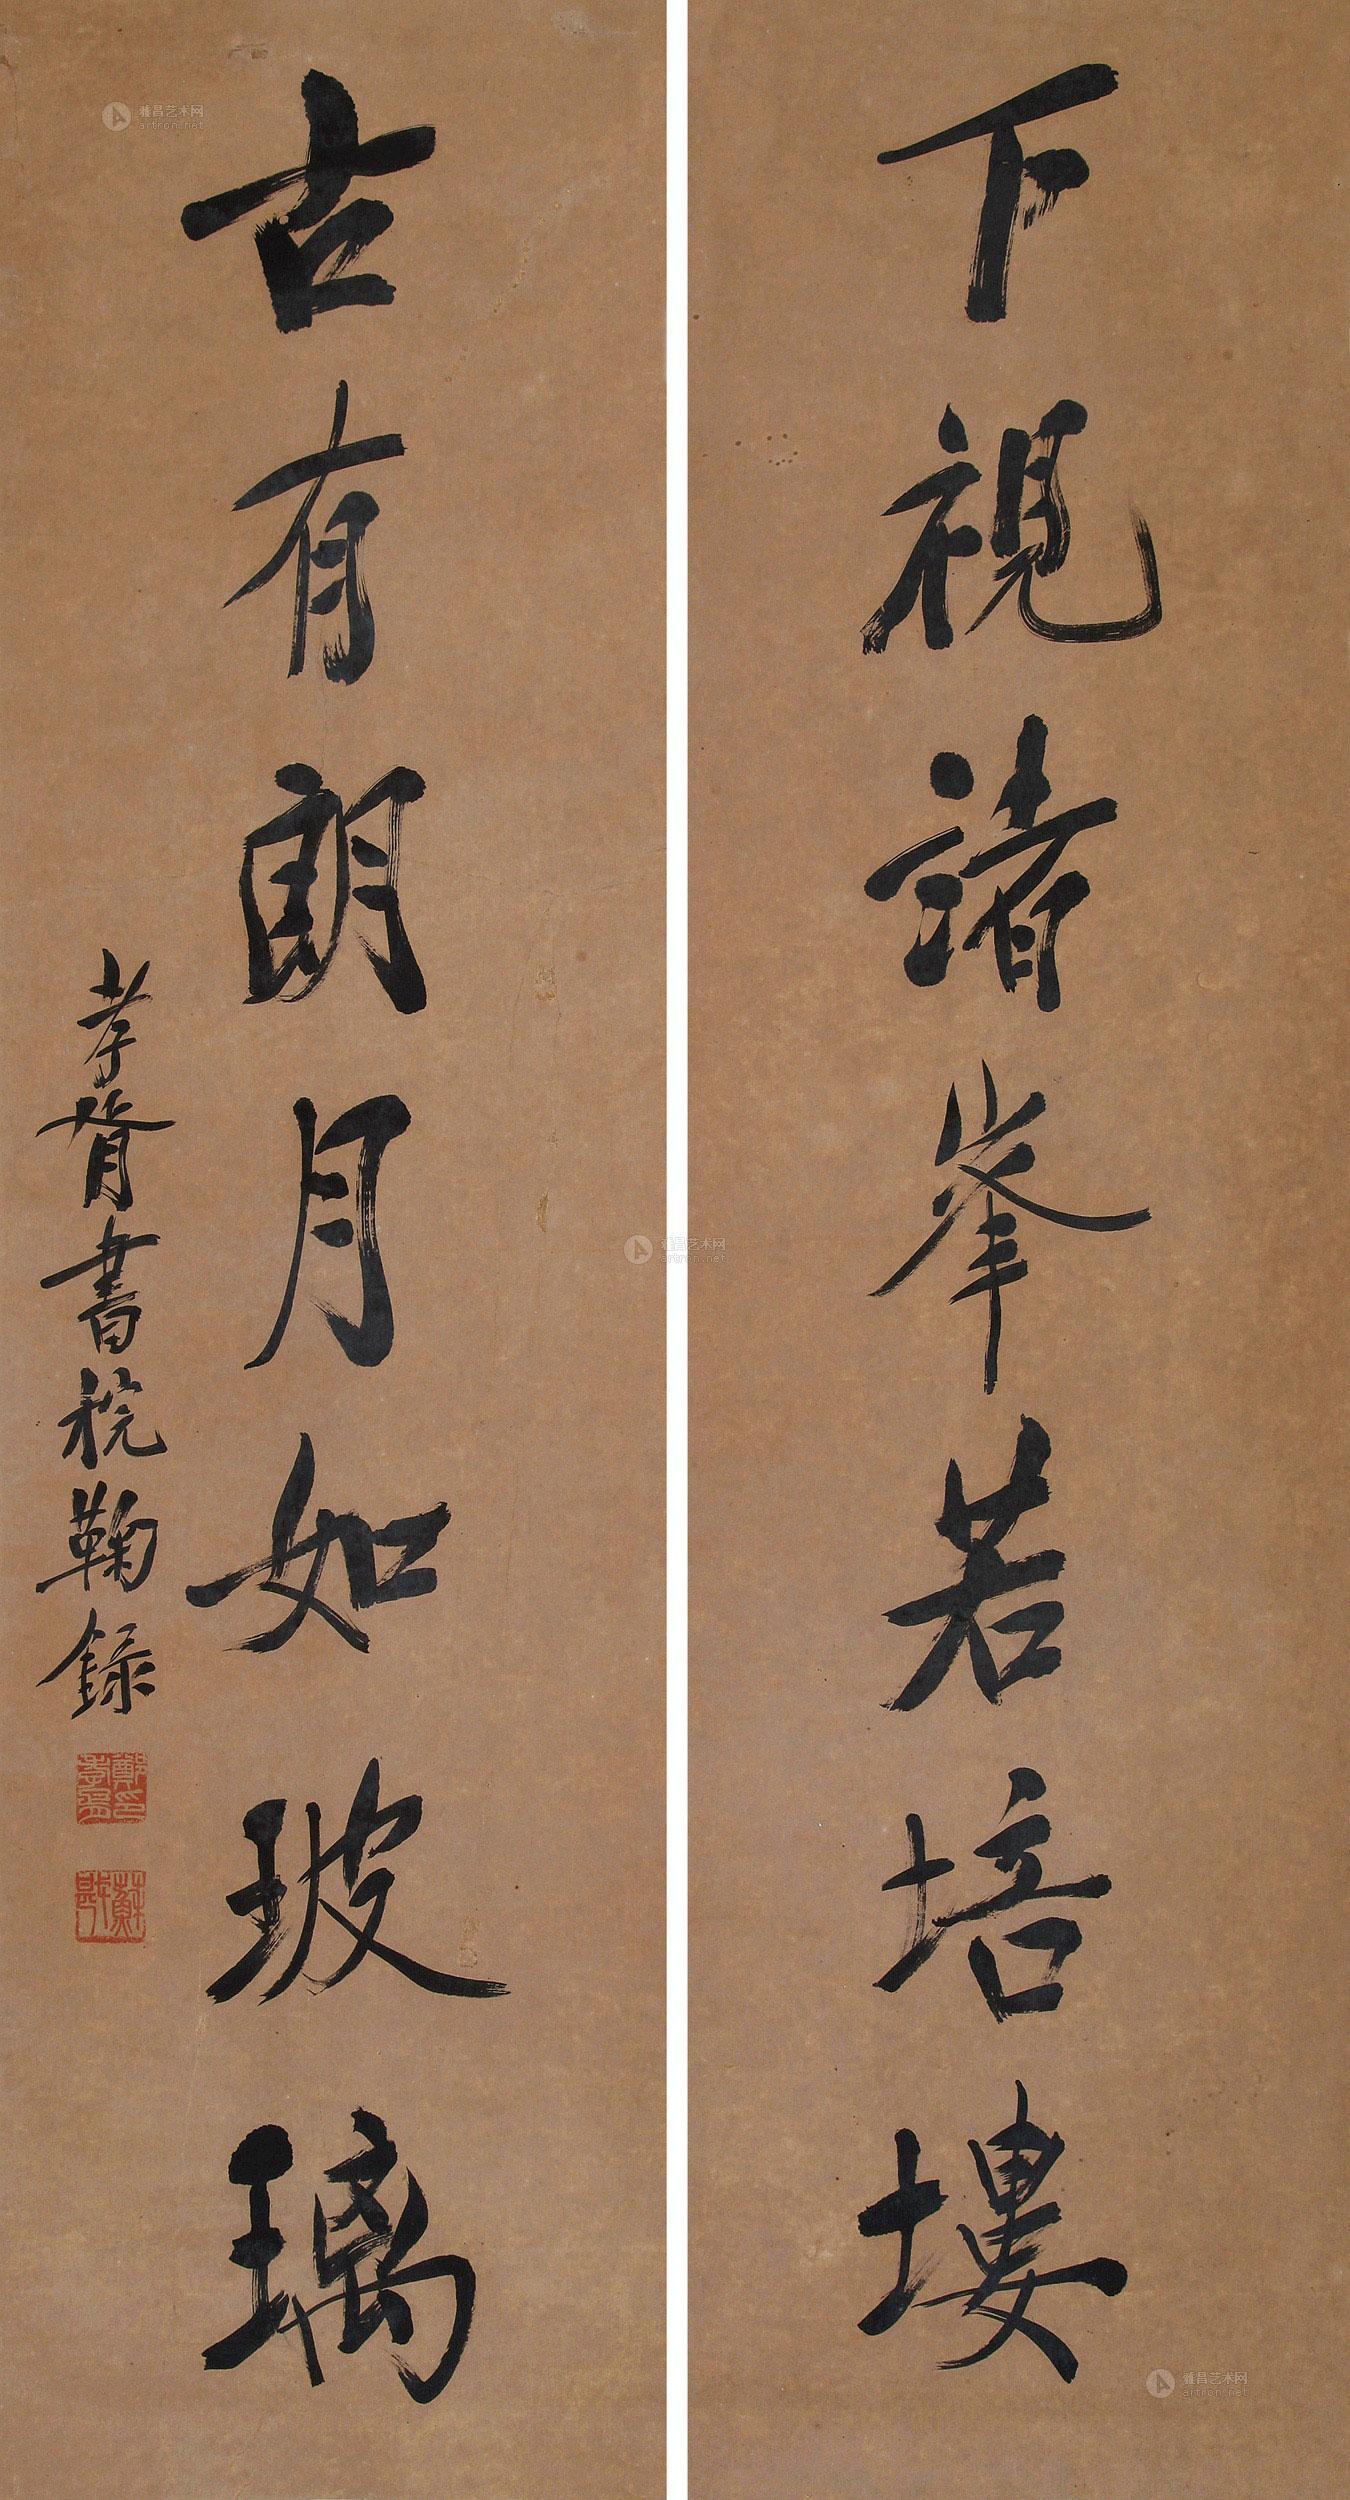 下視諸峯若培塿
古有朗月如玻璃
孝胥書稅鞠錄
鄭印孝胥
蘇戡
雅昌艺术网
artron.net
雅昌艺术网
artron.net
雅昌艺术网
artron.net